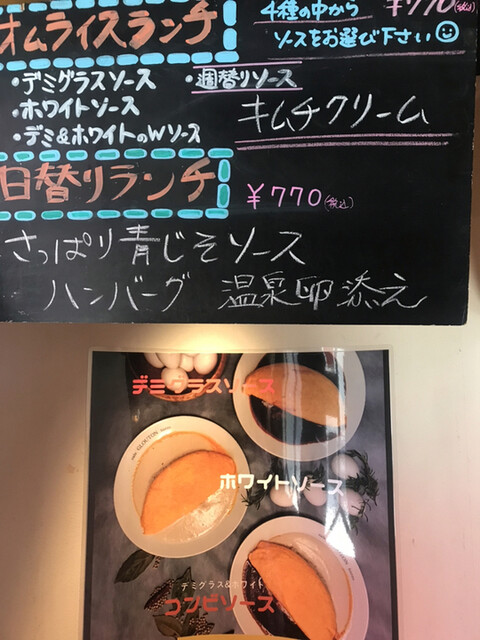 オムライスランチ
4種の中から ¥770(税込)
ソースをお選び下さい
・デミグラスソース ・週替りソース
・ホワイトソース
キムチクリーム
・デミ&ホワイトのWソース
日替りランチ
¥770(税込)
さっぱり青じそソース
ハンバーグ 温泉卵添え
デミグラスソース
GLOUTON
ホワイトソース
デミグラス&ホワイト
コンビソース